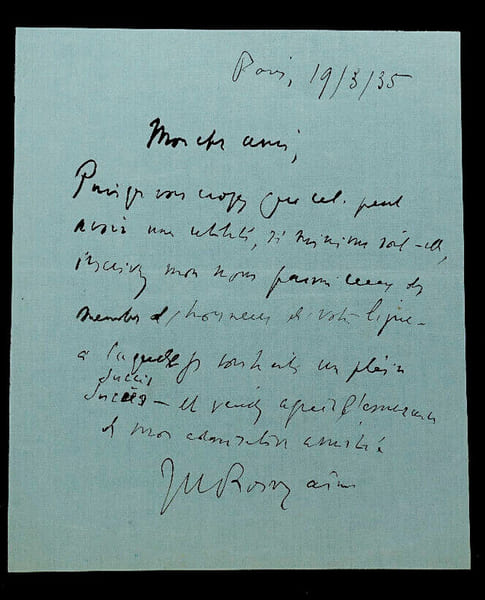 Paris, 19/3/35
Mon cher ami,
Puisque vous croyez que cela peut
avoir une utilité, si minime soit-elle,
inscrivez mon nom parmi ceux des
membres d'honneur de votre ligue -
à laquelle je souhaite un plein
succès
succès - et veuillez agréer l'assurance
de mon admirative amitié.
J H Rosny aîné